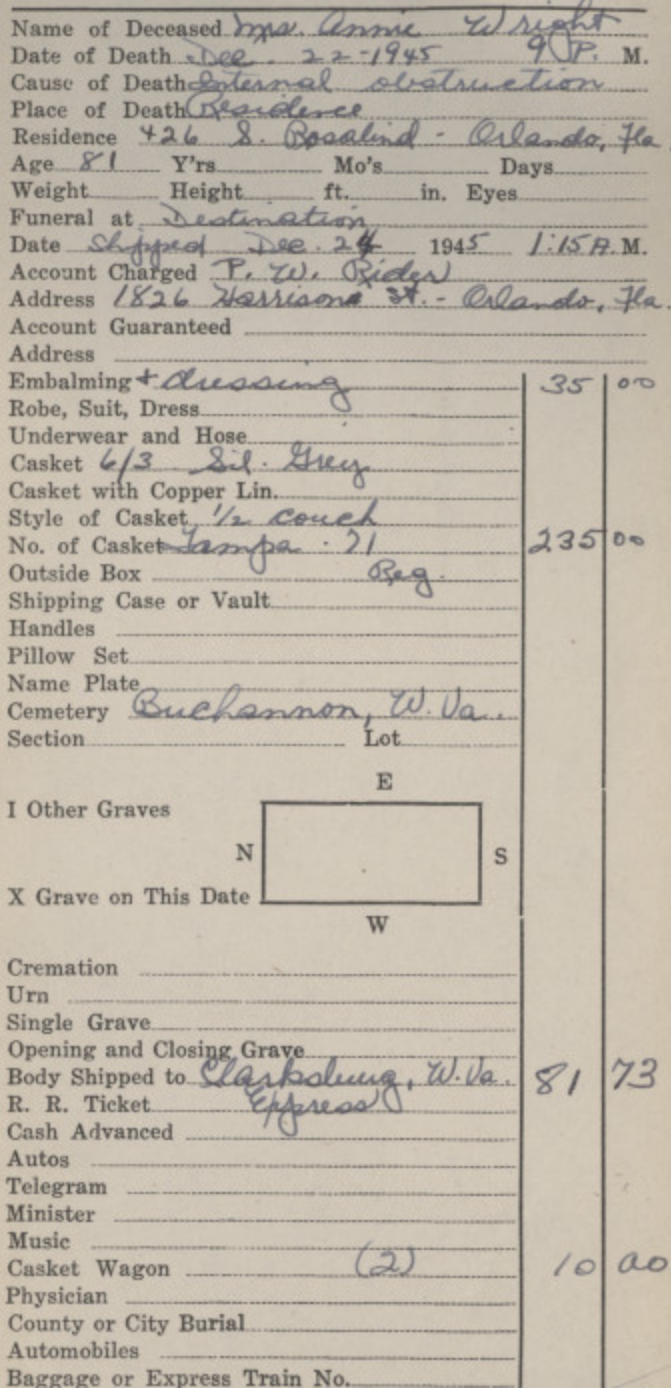 Name of Deceased Mrs. Annie Wright
Date of Death Dec. 22-1945 9 P. M.
Cause of Death Internal obstruction
Place of Death Residence
Residence 426 S. Rosalind - Orlando, Fla
Age 81 Y'rs Mo's Days
Weight Height ft. in. Eyes
Funeral at Destination
Date Shipped Dec. 24 1945 1:15 A. M.
Account Charged P. W. Rider
Address 1826 Harrison St. - Orlando, Fla.
Account Guaranteed
Address
Embalming + dressing 35 00
Robe, Suit, Dress
Underwear and Hose
Casket 6/3 Sil. Grey
Casket with Copper Lin.
Style of Casket 1/2 couch
No. of Casket Tampa - 71 235 00
Outside Box Reg.
Shipping Case or Vault
Handles
Pillow Set
Name Plate
Cemetery Buchannon, W. Va.
Section Lot
E
I Other Graves
N S
X Grave on This Date
W
Cremation
Urn
Single Grave
Opening and Closing Grave
Body Shipped to Clarksburg, W. Va. 81 73
R. R. Ticket Express
Cash Advanced
Autos
Telegram
Minister
Music
Casket Wagon (2) 10 00
Physician
County or City Burial
Automobiles
Baggage or Express Train No.